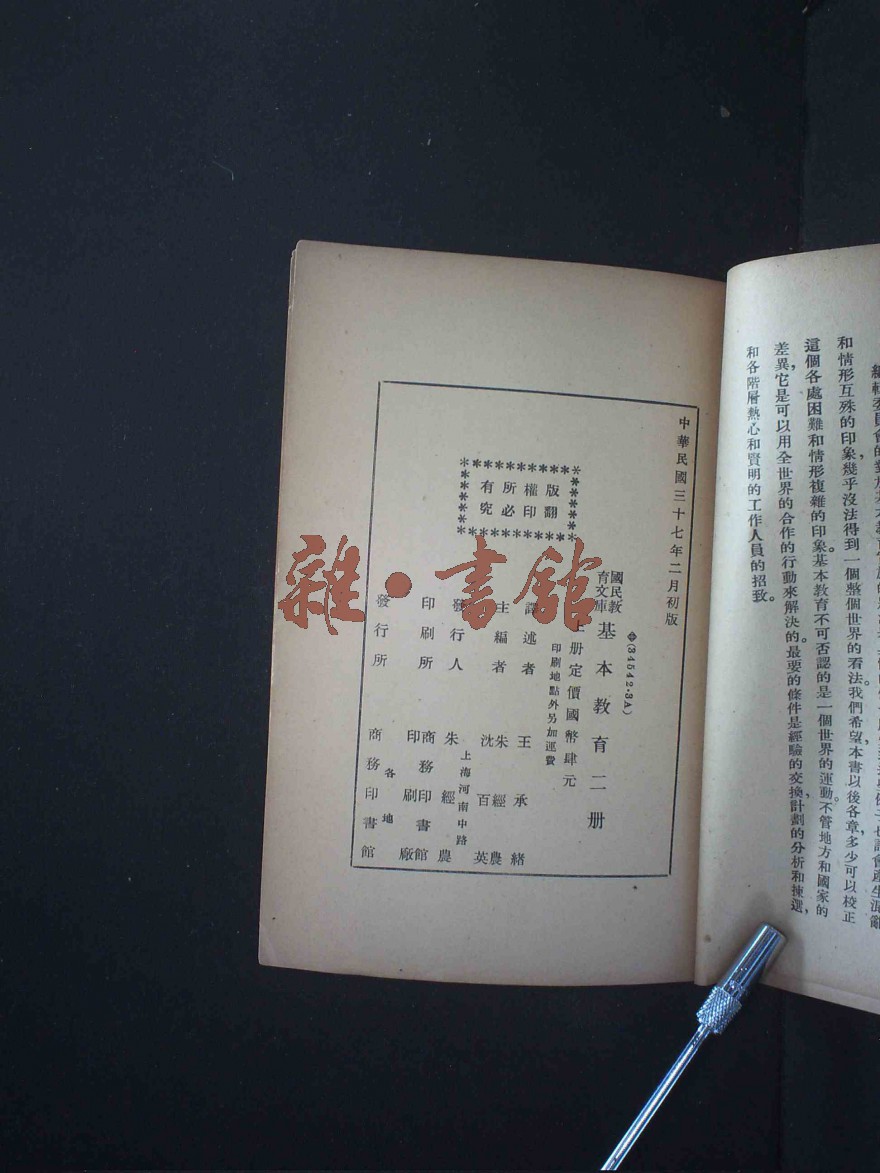 和情形互殊的印象幾乎沒法得到一個整個世界的看法我們希望本書以後各章多少可以校正
這個各處困難和情形複雜的印象。基本教育不可否認的是一個世界的運動，不管地方和國家的
差異，它是可以用全世界的合作的行動來解決的。最要的條件是經驗的交換，計劃的分析和揀選，
和各階層熱心和賢明的工作人員的招致。
中華民國三十七年二月初版
(34542·3A)
國民教育文庫 基本教育二册
上册定價國幣肆元
印刷地點外另加運費
版權所有
翻印必究
譯述者 王承緒
主編者 朱經農 沈百英
發行人 朱經農
上海河南中路
印刷所 商務印書館印刷廠
發行所 各地商務印書館
雜·書館